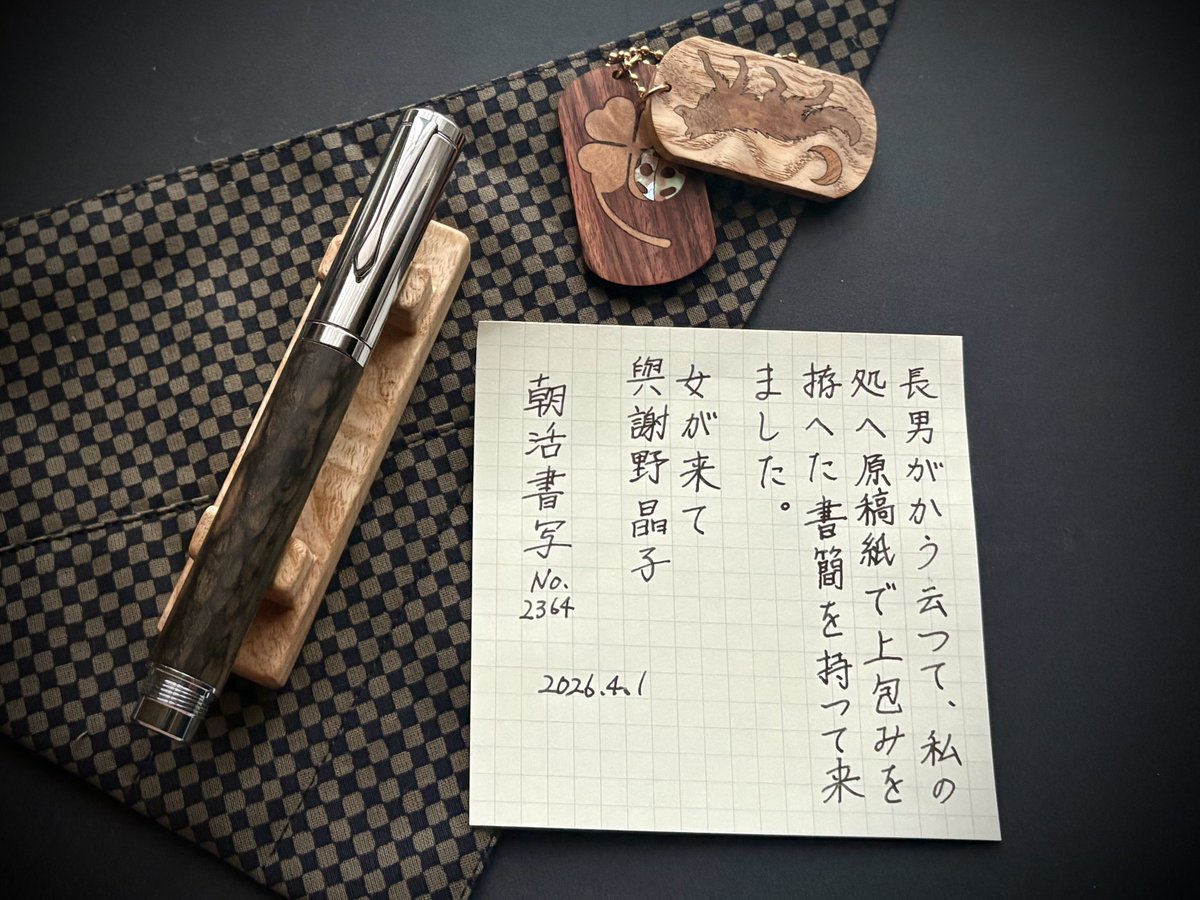 長男がかう云つて、私の
処へ原稿紙で上包みを
拵へた書簡を持つて来
ました。
女が来て
與謝野晶子
朝活書写
No.
2364
2026.4.1